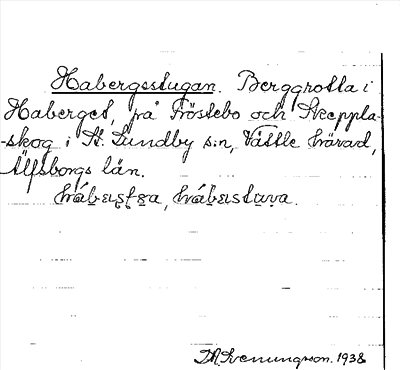 Habergsstugan. Berggrotta i
Haberget, på Fröstebo och Skeppla-
-skog i St. Lundby s:n, Vättle härad,
Älfsborgs län.
Th. Svenungsson. 1938